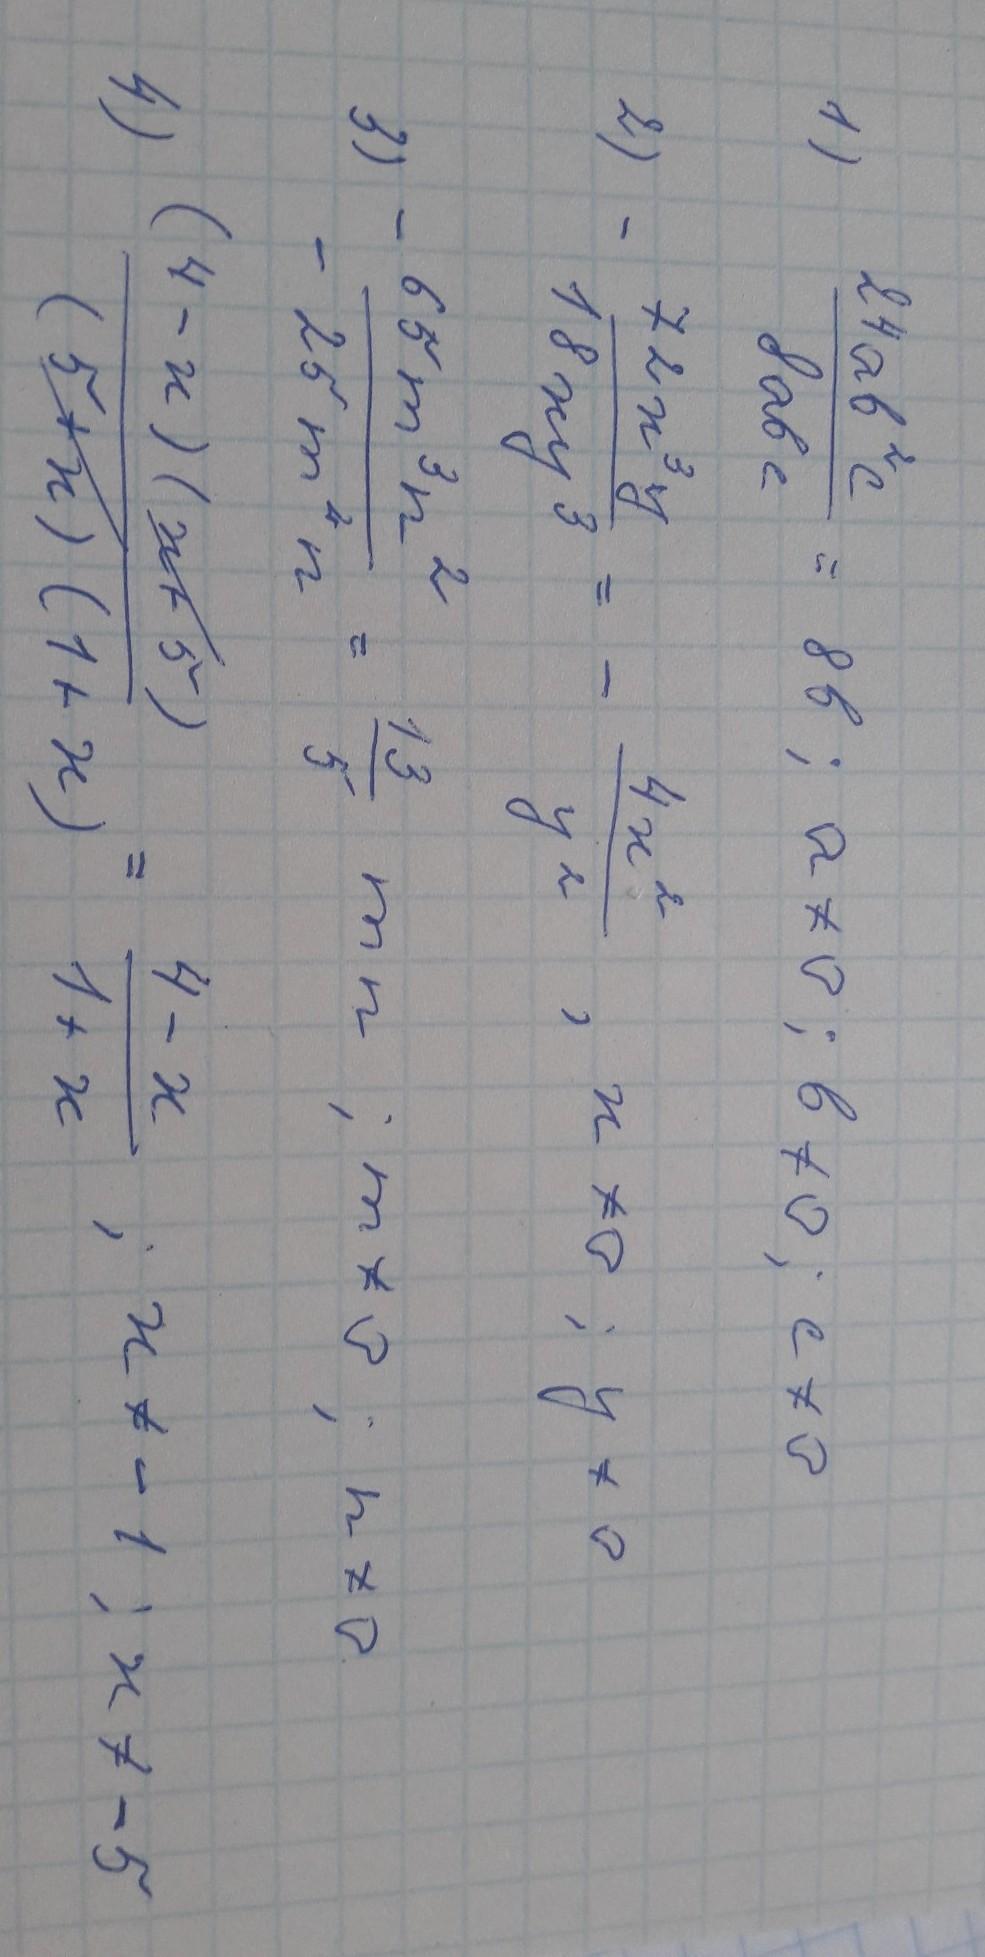 1) 24ab²c / 8abc = 8b ; a ≠ 0 ; b ≠ 0 ; c ≠ 0
2) - 72x³y / 18xy³ = - 4x² / y² , x ≠ 0 ; y ≠ 0
3) - 65m³n² / - 25m²n = 13 / 5 mn ; m ≠ 0 ; n ≠ 0
4) (4 - x)(x + 5) / (5 + x)(1 + x) = 4 - x / 1 + x ; x ≠ - 1 ; x ≠ - 5